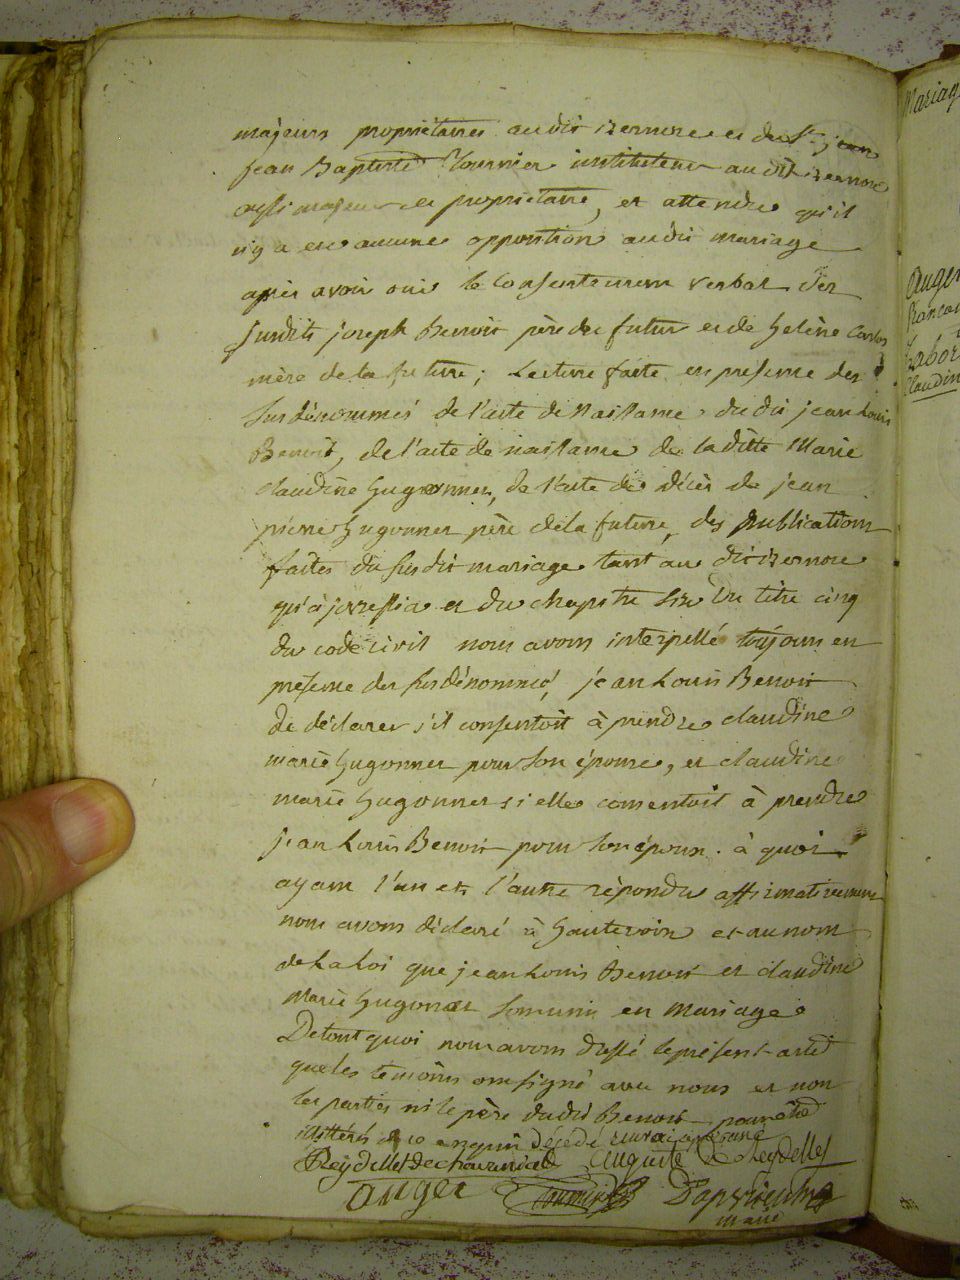 majeurs propriétaires audit izernore et de Sr jean
jean Baptiste Tournier instituteur au dit izernore
aussi majeur et propriétaire, et attendu qu'il
n'y a eu aucune opposition audit mariage
après avoir oui le consentement verbal des
susdits joseph Benoit père du futur et de helène
mère de la future; Lecture faite en presence des
susdénommés de l'acte de naissance du dit jean Louis
Benoit, de l'acte de naissance de la ditte Marie
claudine hugonner, de l'acte de décès de jean
pierre hugonner père de la future, des publications
faites du susdit mariage tant au dit izernore
qu'à et du chapitre six du titre cinq
du code civil nous avons interpellé toujours en
presence des susdénommés, jean Louis Benoit
de déclarer s'il consentoit à prendre claudine
marie hugonner pour son épouse, et claudine
marie hugonner si elle consentoit à prendre
jean Louis Benoit pour son époux. à quoi
ayant l'un et l'autre répondu affirmativement
nous avons déclaré à hautevoix et au nom
de La Loi que jean Louis Benoit et claudine
Marie hugonner sont unis en mariage
De tout quoi nous avons dressé le présent acte
que les témoins ont signé avec nous et non
les parties ni le père dudit Benoit pour être
illittérés de ce enquis
Reydellet de chavannes auguste de Reydellet
auger Tournier
marie
Mariage
Auger
françoi
Labor
Claudin